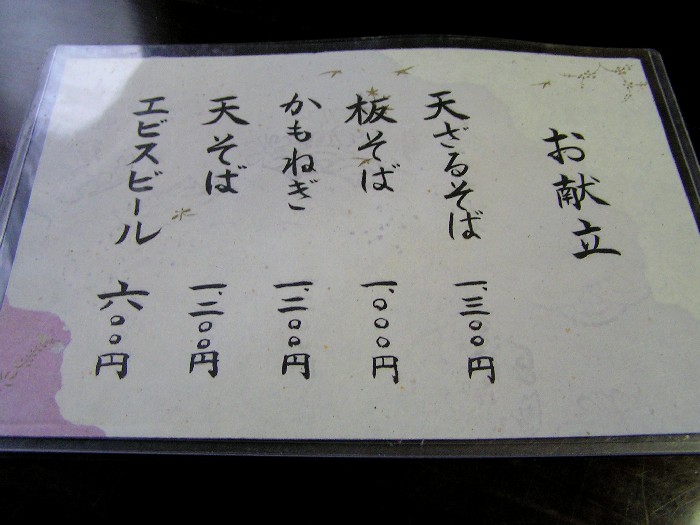 お献立
天ざるそば 一、三〇〇円
板そば 一、〇〇〇円
かもねぎ 一、二〇〇円
天そば 一、二〇〇円
エビスビール 六〇〇円